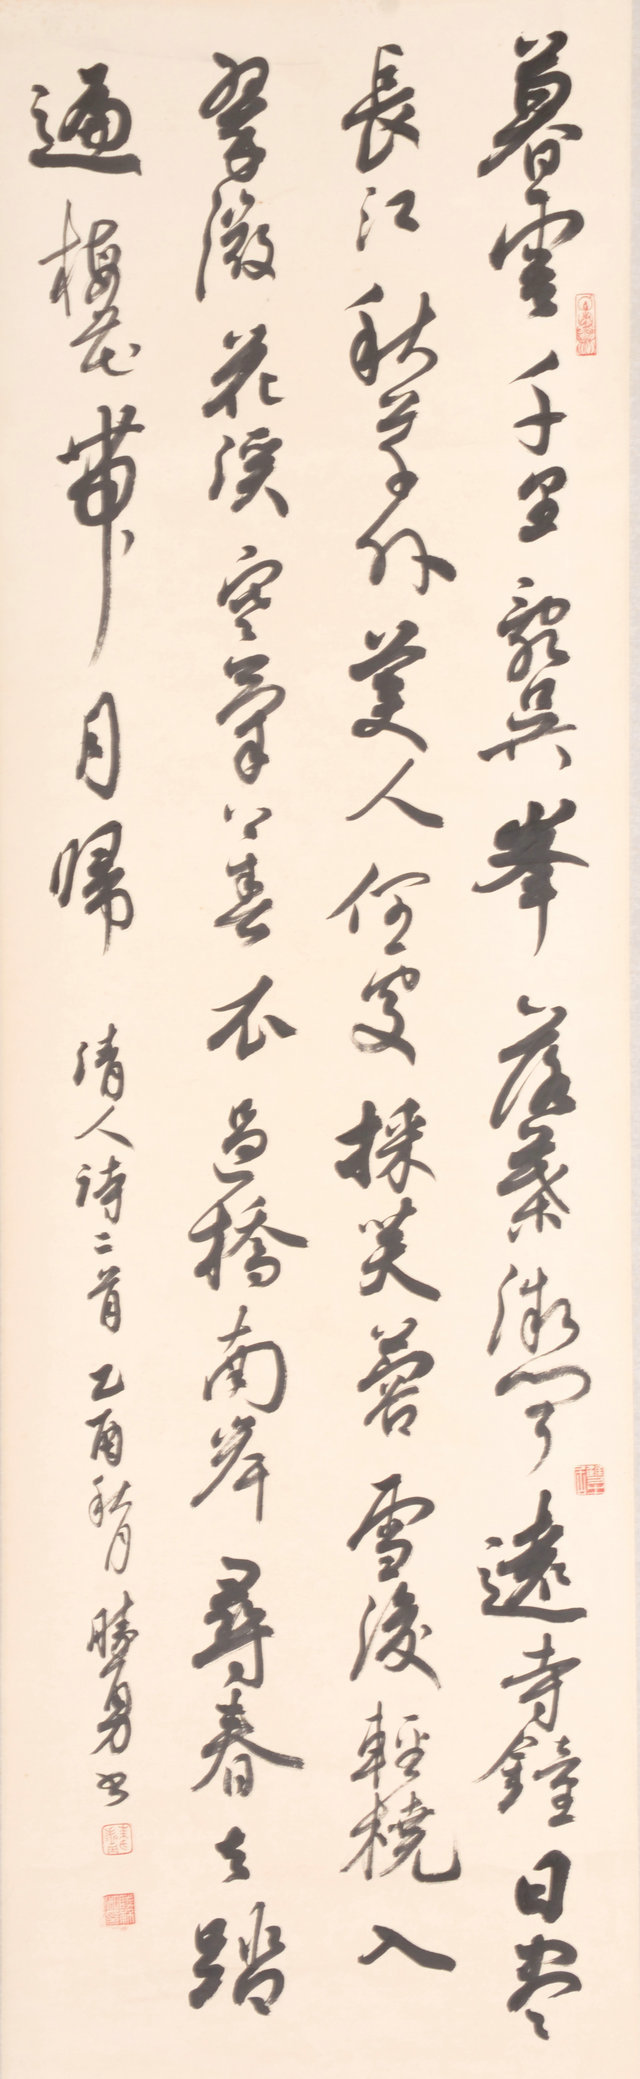 暮雲千里亂吳峯落葉微聞遠寺鐘日盡
長江秋草外美人何處採芙蓉雪後輕橈入
翠微花溪寒氣上春衣過橋南岸尋春去踏
遍梅花帶月歸 清人詩二首 乙酉秋月 勝勇書